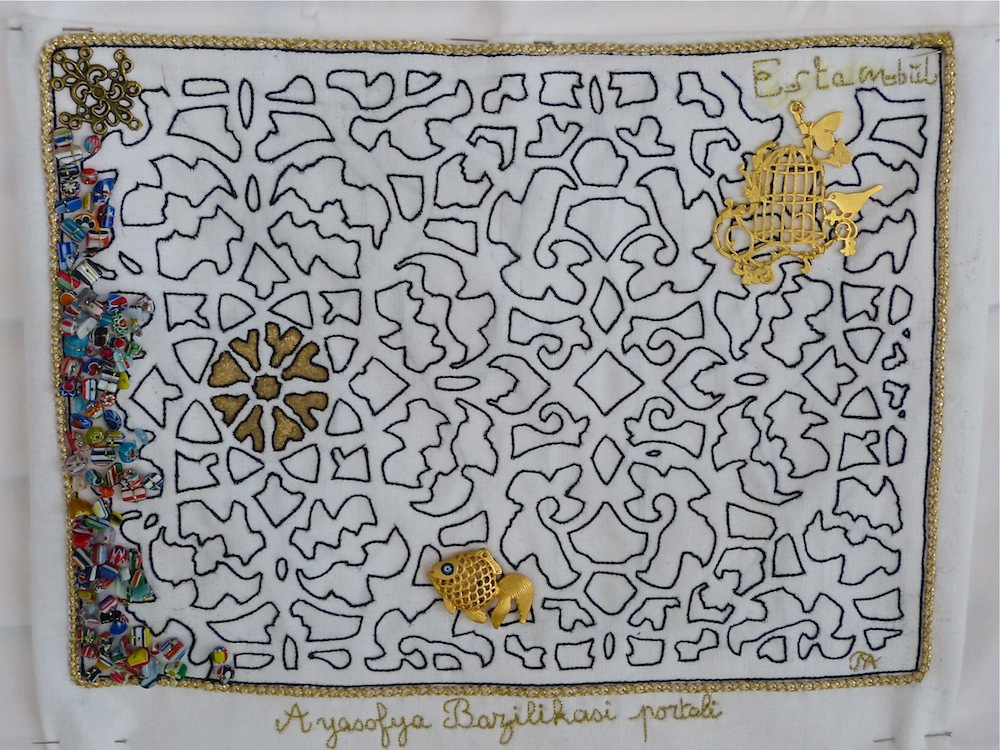 Estambul
MA
Ayasofya Bazilikasi portali